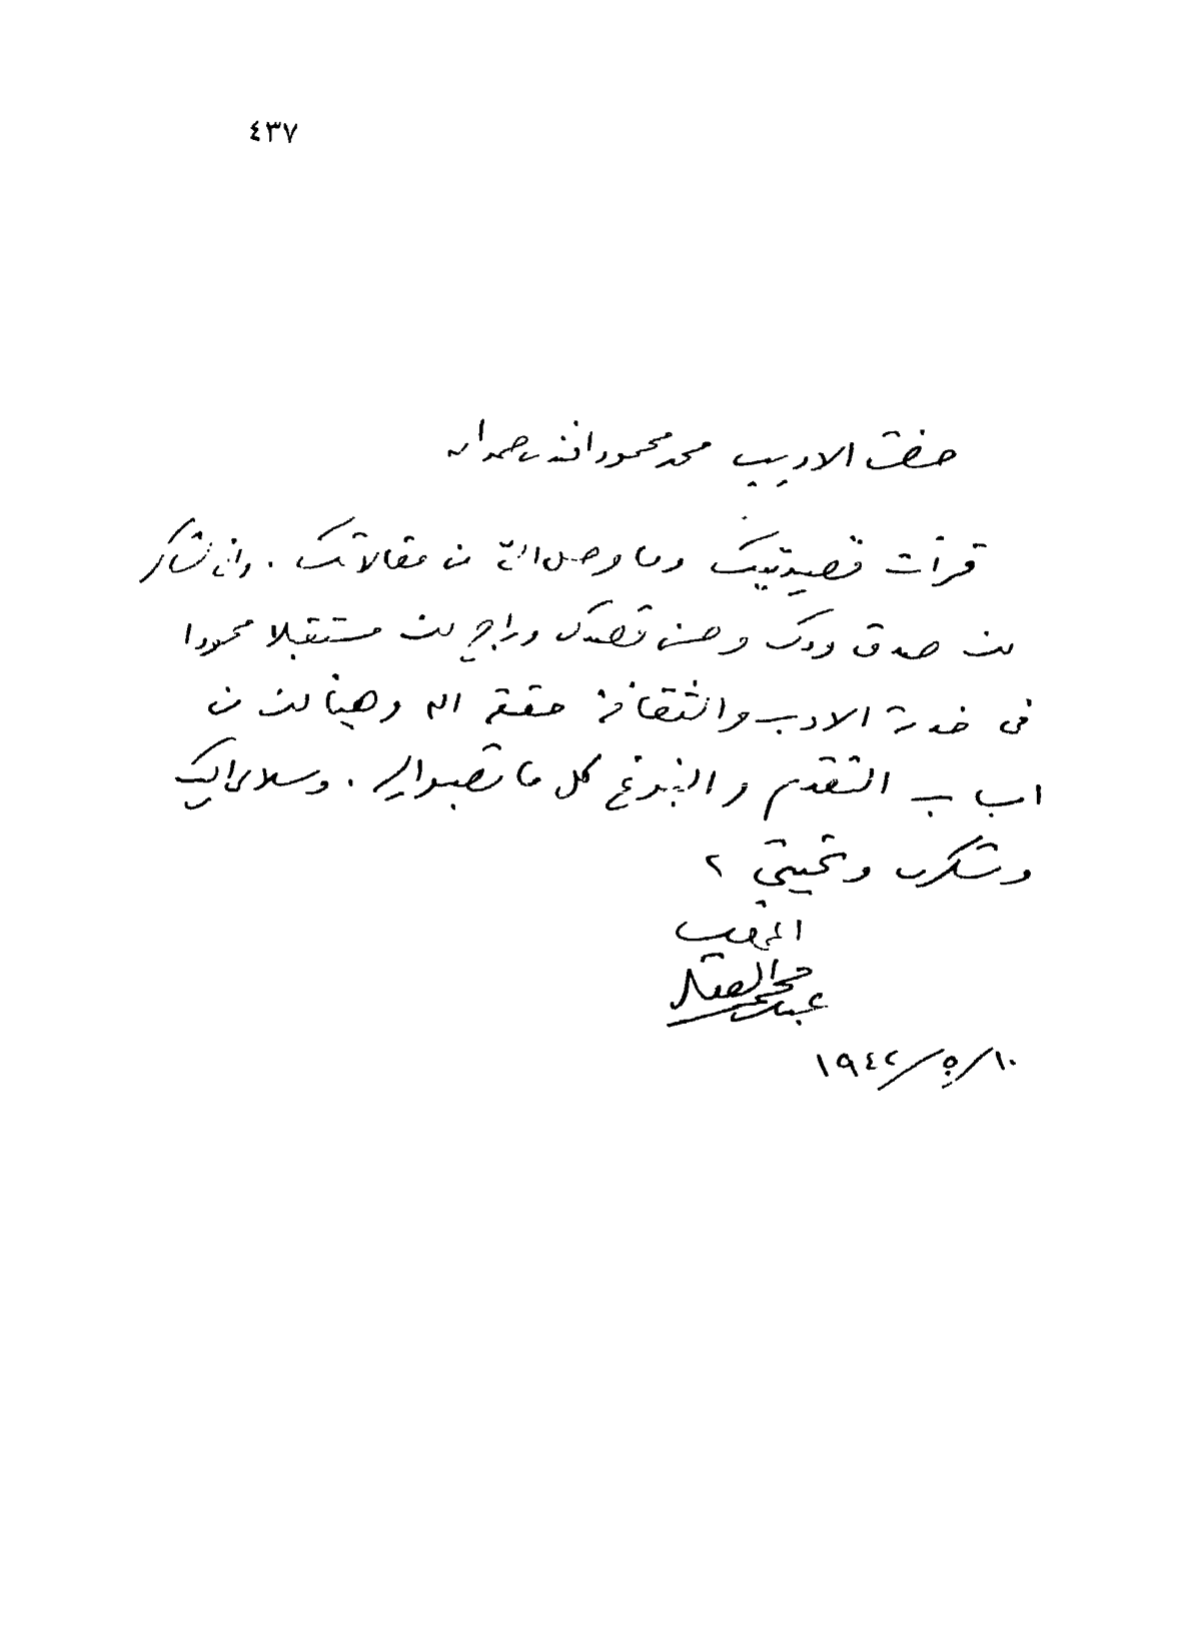 ٤٣٧
حضرة الاديب محمد محمود افندي حمدان
قرأت قصيدتيك وما وصل الىّ من مقالاتك . واني لشاكر
لك صدق ودك وحسن قصدك وراج لك مستقبلا محمودا
في خدمة الادب والثقافة حققه الله وهيأ لك من
اسباب التقدم والنبوغ كل ما تصبو اليه . وسلامي اليك
وشكري وتحيتي
المخلص
عباس محمود العقاد
١٠/٥/١٩٤٢